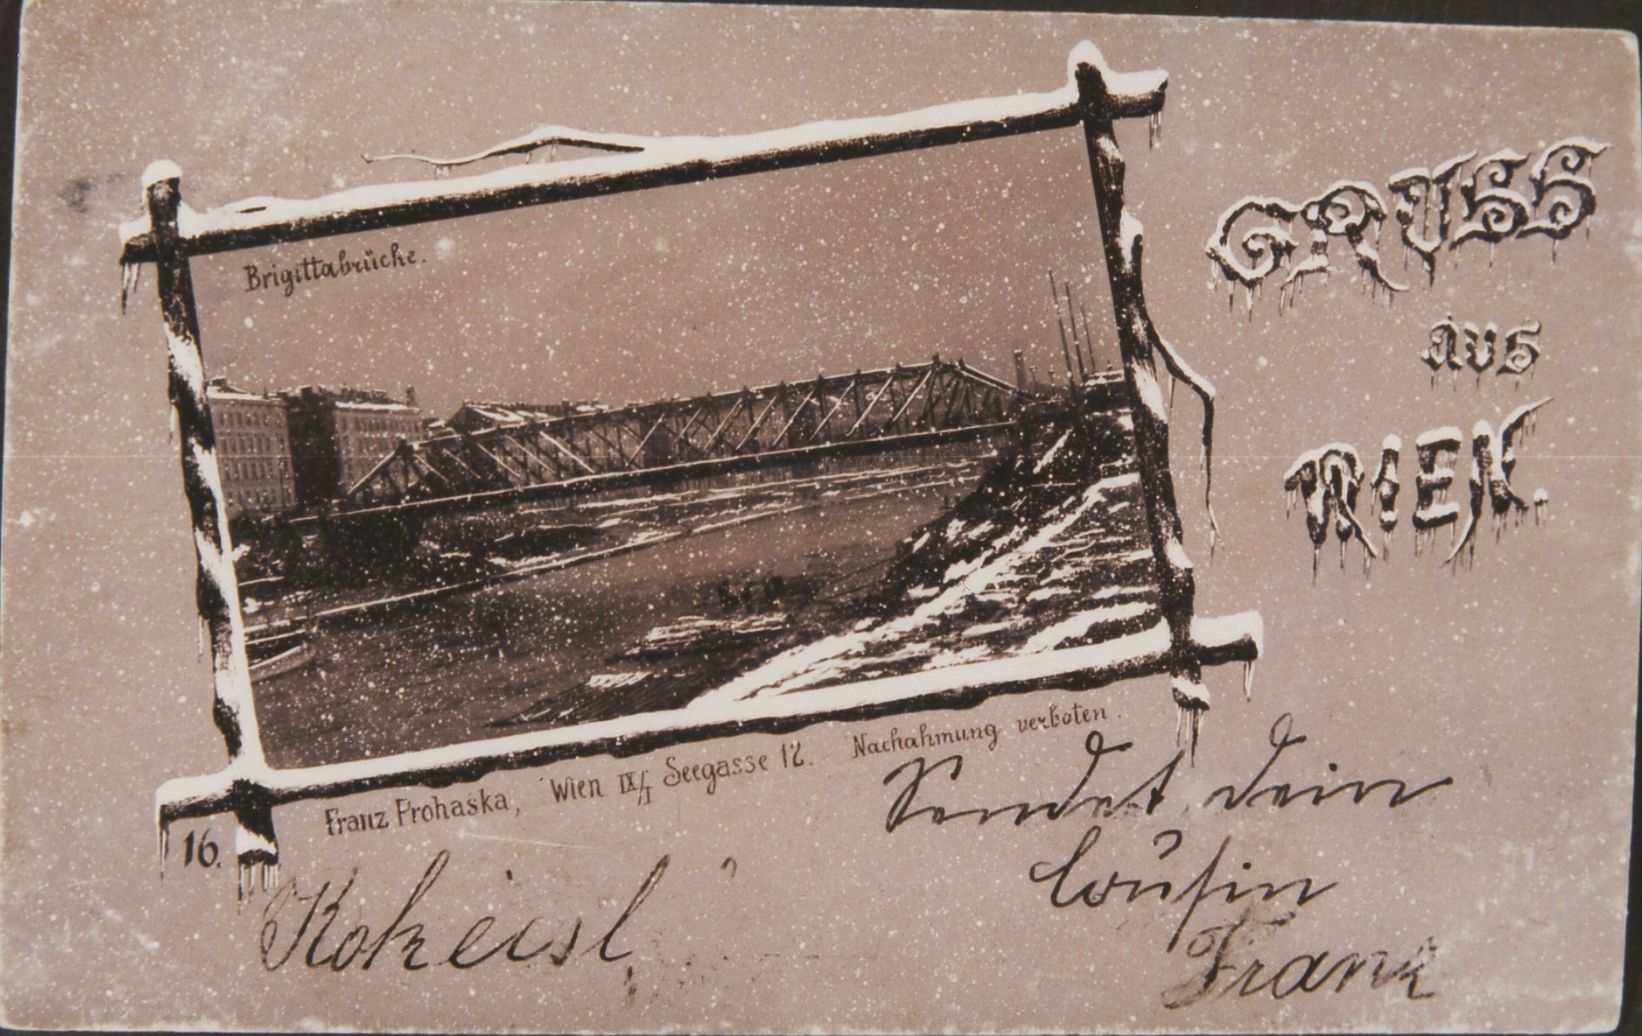 Brigittabrücke.
GRUSS
aus
WIEN.
Franz Prohaska, Wien IX/I Seegasse 12. Nachahmung verboten.
16.
Sendet dein
Cousin
Franz
Kokeisl